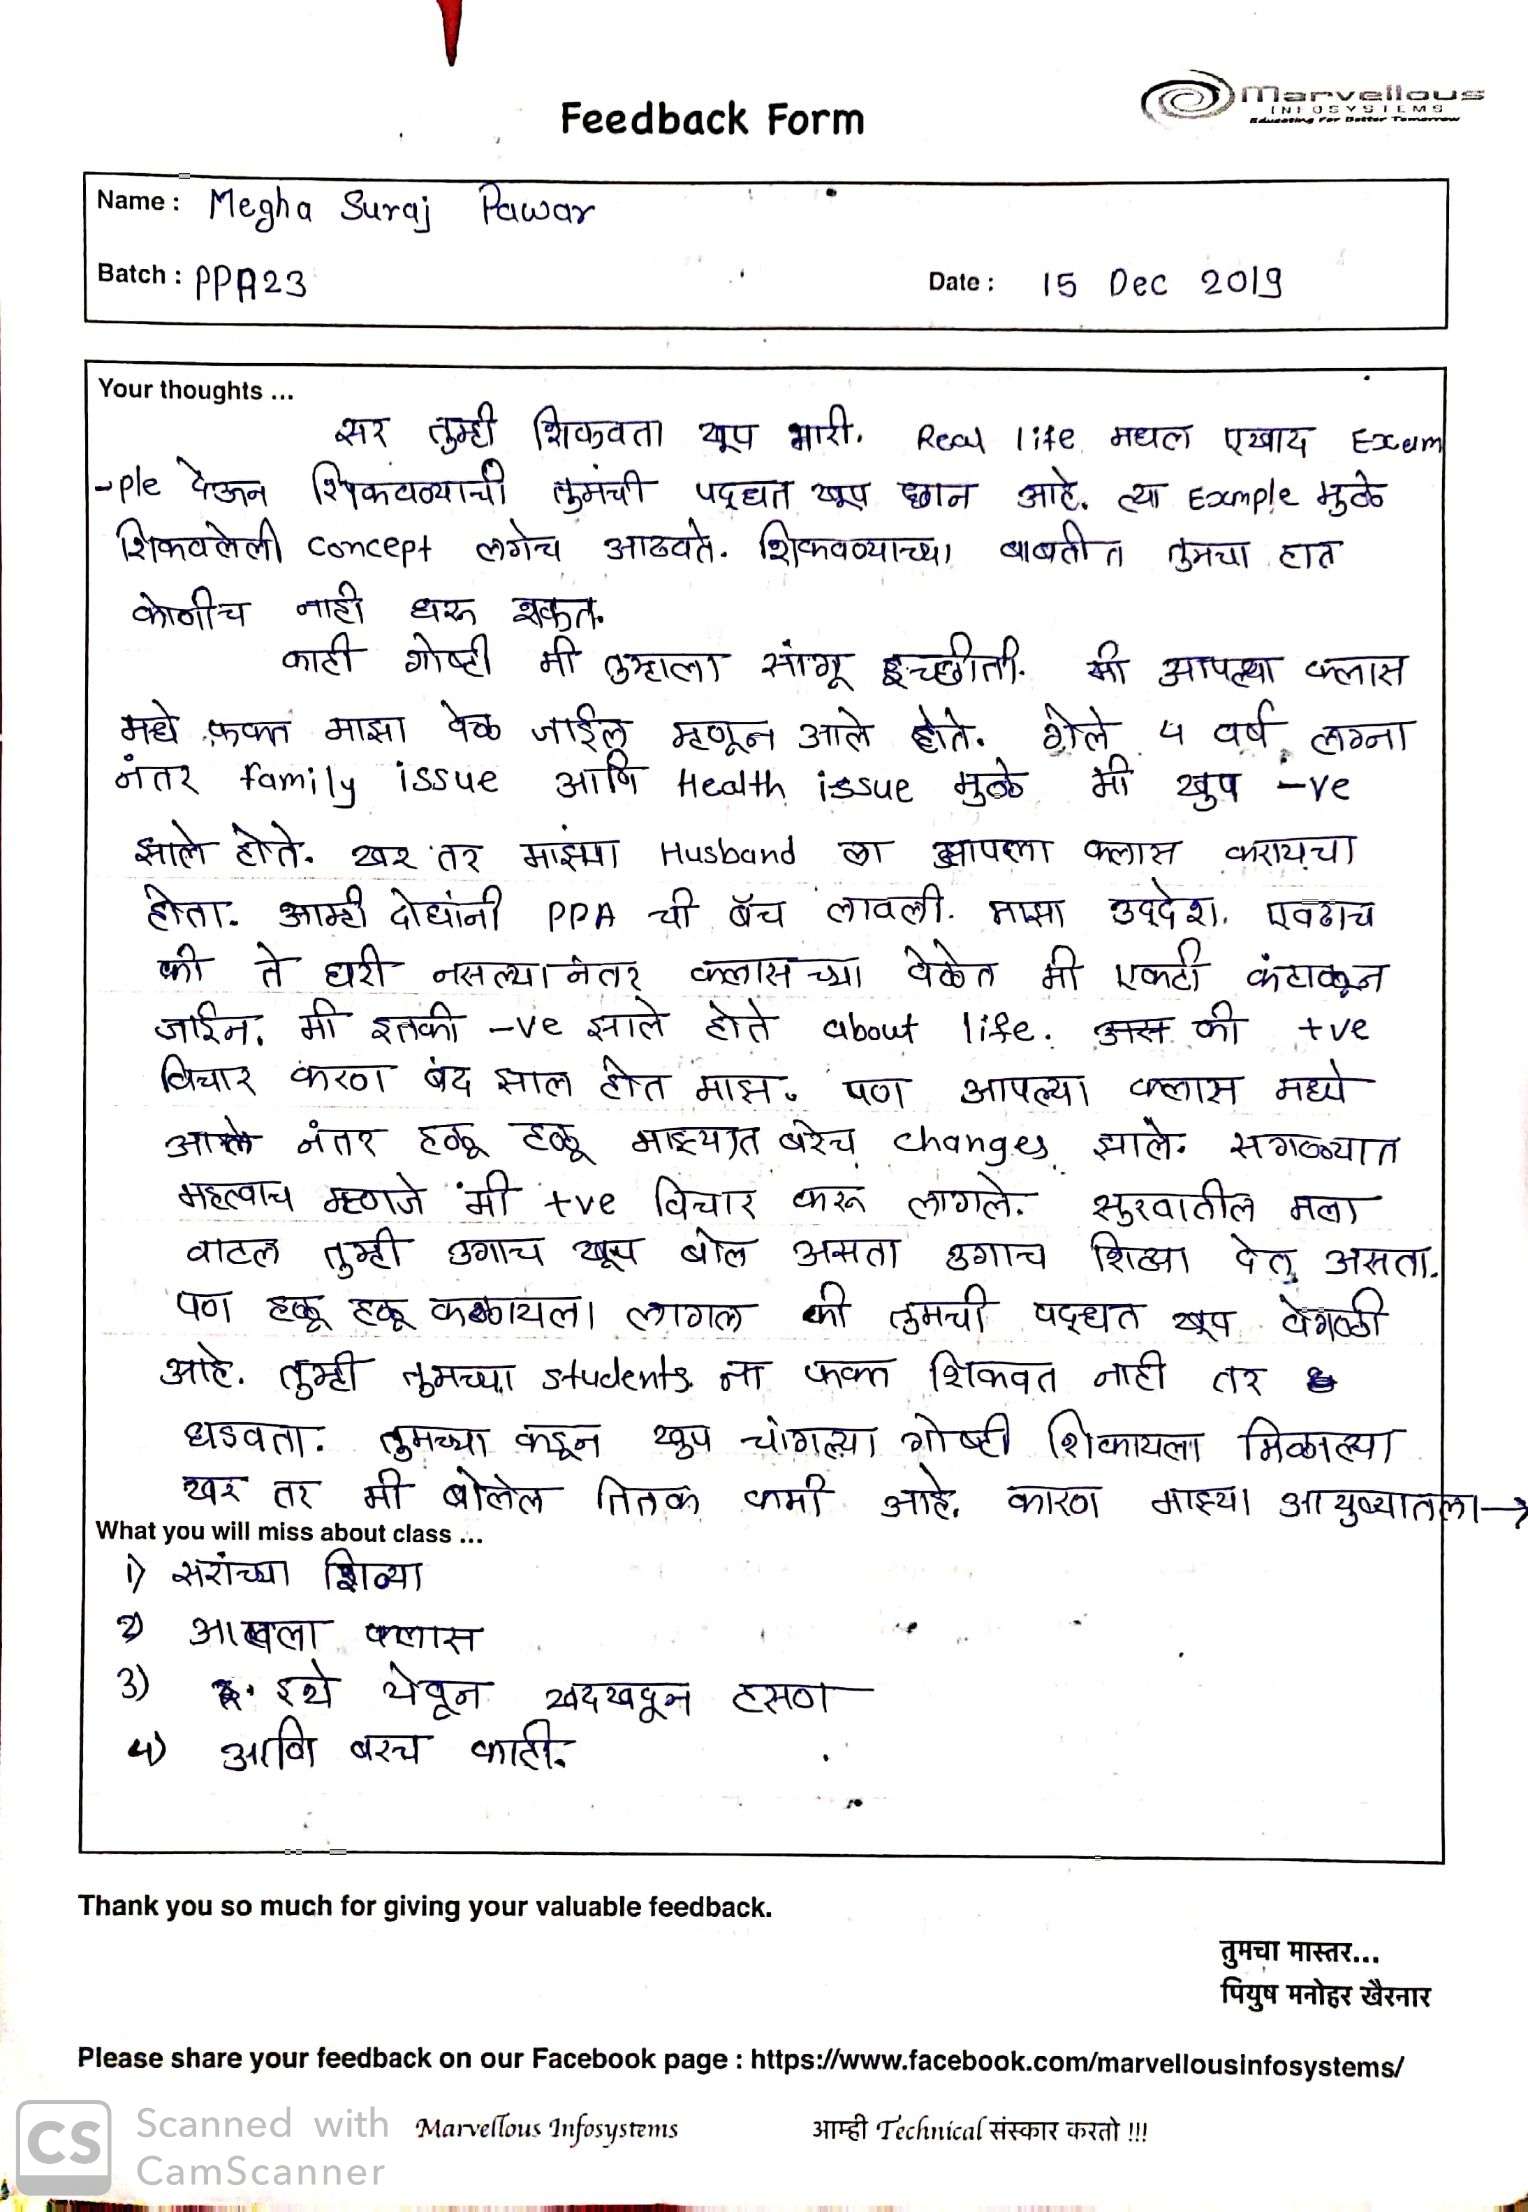 Feedback Form
Marvellous
INFOSYSTEMS
Educating For Better Tomorrow
Name : Megha Suraj Pawar
Batch : PPA23
Date : 15 Dec 2019
Your thoughts ...
सर तुम्ही शिकवता खूप भारी. Real life मधल एखाद Exam
-ple देऊन शिकवण्याची तुमची पद्धत खूप छान आहे. त्या Example मुळे
शिकवलेली concept लगेच आठवते. शिकवण्याच्या बाबतीत तुमचा हात
कोणीच नाही धरू शकत.
काही गोष्टी मी तुम्हाला सांगू इच्छीती. मी आपल्या क्लास
मधे फक्त माझा वेळ जाईल म्हणून आले होते. गेले 4 वर्ष लग्ना
नंतर family issue आणि Health issue मुळे मी खुप -ve
झाले होते. खर तर माझ्या Husband ला आपला क्लास करायचा
होता. आम्ही दोघांनी PPA ची बॅच लावली. माझा उद्देश. एवढाच
की ते घरी नसल्यानंतर क्लासच्या वेळेत मी एकटी कंटाळून
जाईन. मी इतकी -ve झाले होते about life. अस की +ve
विचार करण बंद झाल होत माझ. पण आपल्या क्लास मध्ये
आले नंतर हळू हळू माझ्यात बरेच changes झाले. सगळ्यात
महत्वाच म्हणजे मी +ve विचार करू लागले. सुरवातील मला
वाटल तुम्ही उगाच खूप बोल असता उगाच शिव्या देत असता.
पण हळू हळू कळायला लागल की तुमची पद्धत खूप वेगळी
आहे. तुम्ही तुमच्या students ना फक्त शिकवत नाही तर
घडवता. तुमच्या कडून खुप चांगल्या गोष्टी शिकायला मिळाल्या
खर तर मी बोलेल तितक कमी आहे. कारण माझ्या आयुष्यातला→
What you will miss about class ...
1) सरांच्या शिव्या
2) आपला क्लास
3) इथे येवून खदखदून हसण
4) आणि बरच काही.
Thank you so much for giving your valuable feedback.
तुमचा मास्तर...
पियुष मनोहर खैरनार
Please share your feedback on our Facebook page : https://www.facebook.com/marvellousinfosystems/
Marvellous Infosystems आम्ही Technical संस्कार करतो !!!
CS Scanned with
CamScanner